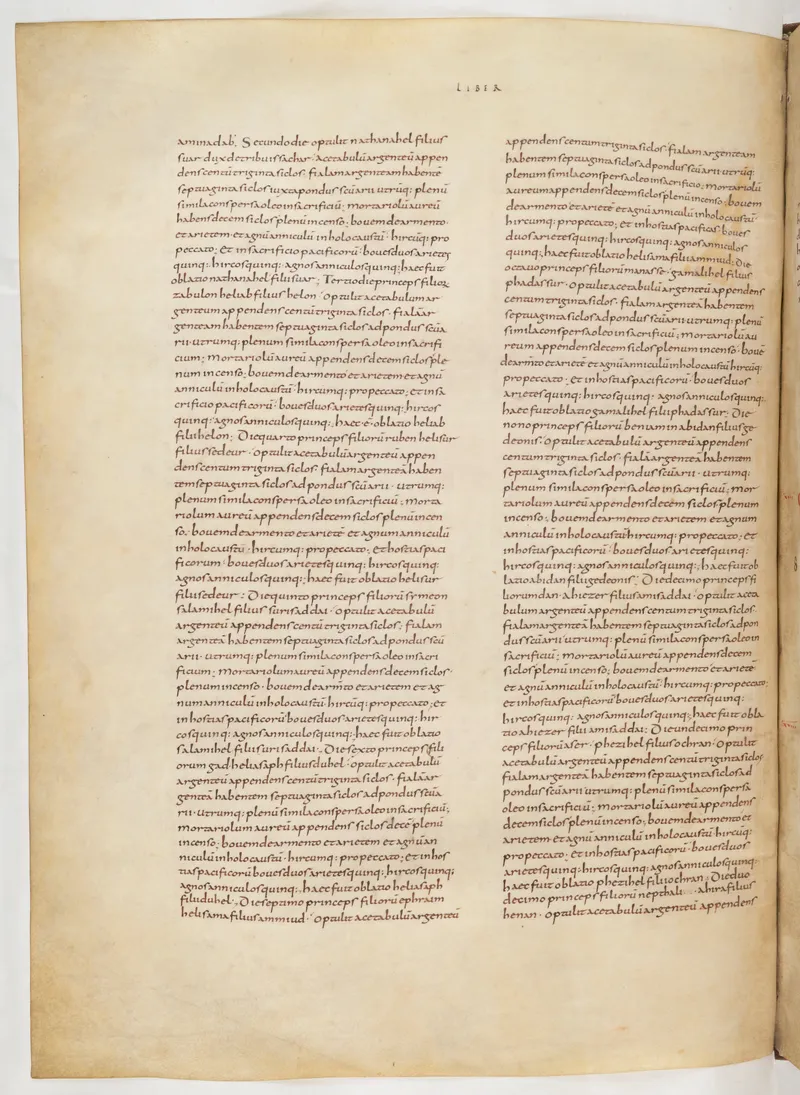 LIBER
aminadab. Secundo die optulit nathanahel filius
suar dux de tribu issachar. acetabulū argenteū appen
dens centū triginta siclos. fialam argenteam habentē
septuaginta siclos iuxta pondus scūarii utrūq: plenū
simila conspersa oleo in sacrificiū; mortariolū aureū
habens decem siclos plenū incenso; bouem de armento.
et arietem. et agnū anniculū in holocaustū. hircūq: pro
peccato; et in sacrificio pacificorū. boues duos arietes
quinq: hircos quinq: agnos anniculos quinq; haec fuit
oblatio nathanahel filii suar; Tertio die princeps filiorū
zabulon heliab filius helon. optulit acetabulum ar
genteum appendens centū triginta siclos. fialā ar
genteam habentem septuaginta siclos ad pondus scūa
rii. utrumq: plenum simila conspersa oleo in sacrifi
cium; mortariolū aureū appendens decem siclos ple
num incenso; bouem de armento et arietem. et agnū
anniculū in holocaustū. hircumq: pro peccato; et in sa
crificio pacificorū. boues duos arietes quinq: hircos
quinq: agnos anniculos quinq; haec ē oblatio heliab
filii helon; Die quarto princeps filiorū ruben helisur
filius sedeur. optulit acetabulū argenteū appen
dens centum triginta siclos. fialam argenteā haben
tem septuaginta siclos ad pondus scūarii. utrumq:
plenum simila conspersa oleo in sacrificiū; morta
riolum aureū appendens decem siclos plenū incen
so. bouem de armento et arietē et agnum anniculū
in holocaustū. hircumq: pro peccato; et hostias paci
ficorum. boues duos arietes quinq: hircos quinq:
agnos anniculos quinq; haec fuit oblatio helisur
filii sedeur; Die quinto princeps filiorū symeon
salamihel filius surisaddai. optulit acetabulū
argenteū appendens centū triginta siclos; fialam
argenteā habentem septuaginta siclos ad pondus scū
arii. utrumq: plenum simila conspersa oleo in sacri
ficium; mortariolum aureū appendens decem siclos.
plenum incenso. bouem de arm̄to et arietem et ag
num anniculū in holocaustū. hircūq: pro peccato; et
in hostias pacificorū boues duos arietes quinq: hir
cos quinq: agnos anniculos quinq; haec fuit oblatio
salamihel filii surisaddai. Die sexto princeps fili
orum gad heliasaph filius duhel. optulit acetabulū
argenteū appendens centū triginta siclos. fialā ar
genteā habentem septuaginta siclos ad pondus scūa
rii utrumq: plenū simila conspersa oleo in sacrificiū;
mortariolum aureū appendens siclos decē plenū
incenso; bouem de armento et arietem et agnum an
niculū in holocaustū. hircumq: pro peccato; et in hos
tias pacificorū boues duos arietes quinq: hircos quinq:
agnos anniculos quinq:. haec fuit oblatio heliasaph
filii duhel. Die septimo princeps filiorū ephraim
helisama filius ammiud. optulit acetabulū argenteū
appendens centum triginta siclos. fialam argenteam
habentem septuaginta siclos ad pondus scūarii utrūq:
plenum simila conspersa oleo in sacrificio; mortariolū
aureum appendens decem siclos plenum incenso; bouem
de armento et arietē et agnū anniculū in holocaustū.
hircumq: pro peccato; et in hostias pacificas boues
duos arietes quinq: hircos quinq: agnos anniculos
quinq; haec fuit oblatio helisama filii ammiud; Die
octauo princeps filiorū manasse. gamalihel filius
phadassur. optulit acetabulū argenteū appendens
centum triginta siclos. fialam argenteā habentem
septuaginta siclos ad pondus scūarii. utrumq: plenū
simila conspersa oleo in sacrificiū; mortariolū au
reum appendens decem siclos plenum incenso. bouē
de arm̄to et arietē et agnū anniculū in holocaustū hircūq:
pro peccato; et in hostias pacificorū. boues duos
arietes quinq: hircos quinq: agnos anniculos quinq:.
haec fuit oblatio gamalihel filii phadassur; Die
nono princeps filiorū beniamin abidan filius ge
deonis. optulit acetabulū argenteū appendens
centum triginta siclos. fialā argenteā habentem
septuaginta siclos ad pondus scūarii. utrumq:
plenum simila conspersa oleo in sacrificiū; mor
tariolum aureū appendens decem siclos plenum
incenso; bouem de armento et arietem et agnum
anniculū in holocaustū hircumq: pro peccato; et
in hostias pacificorū. boues duos arietes quinq:
hircos quinq: agnos anniculos quinq:; haec fuit ob
latio abidan filii gedeonis; Die decimo princeps fi
liorum dan. ahiezer filius amisaddai. optulit aceta
bulum argenteū appendens centum triginta siclos.
fialam argenteā habentem septuaginta siclos ad pon
dus scūarii utrumq: plenū simila conspersa oleo in
sacrificiū; mortariolū aureū appendens decem
siclos plenū incenso; bouem de armento et arietē
et agnū anniculū in holocaustū. hircumq: pro peccato;
et in hostias pacificorū boues duos arietes quinq:
hircos quinq: agnos anniculos quinq:; haec fuit obla
tio ahiezer filii amisaddai; Die undecimo prin
ceps filiorū aser. phezihel filius ochran. optulit
acetabulū argenteū appendens centū triginta siclos
fialam argenteā habentem septuaginta siclos ad
pondus scūarii utrumq: plenū simila conspersa
oleo in sacrificiū; mortariolū aureū appendens
decem siclos plenū incenso; bouem de armento et
arietem et agnū anniculū in holocaustū. hircūq:
pro peccato; et in hostias pacificorū. boues duos
arietes quinq: hircos quinq: agnos anniculos quinq:
haec fuit oblatio phezihel filii ochran; Die duo
decimo princeps filiorū nepthali. ahira filius
henan. optulit acetabulū argenteū appendens